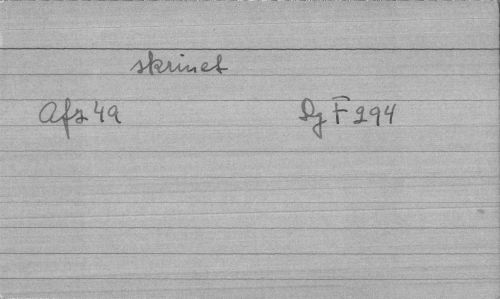 skrinet
Afz 49 Dg F 294